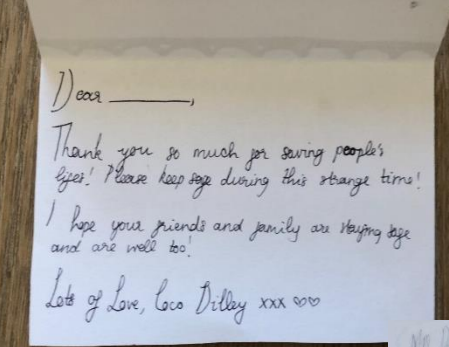 Dear ________,
Thank you so much for saving people's
lifes! Please keep safe during this strange time!
I hope your friends and family are staying safe
and are well too!
Lots of Love, Coco Dilley xxx ♡♡